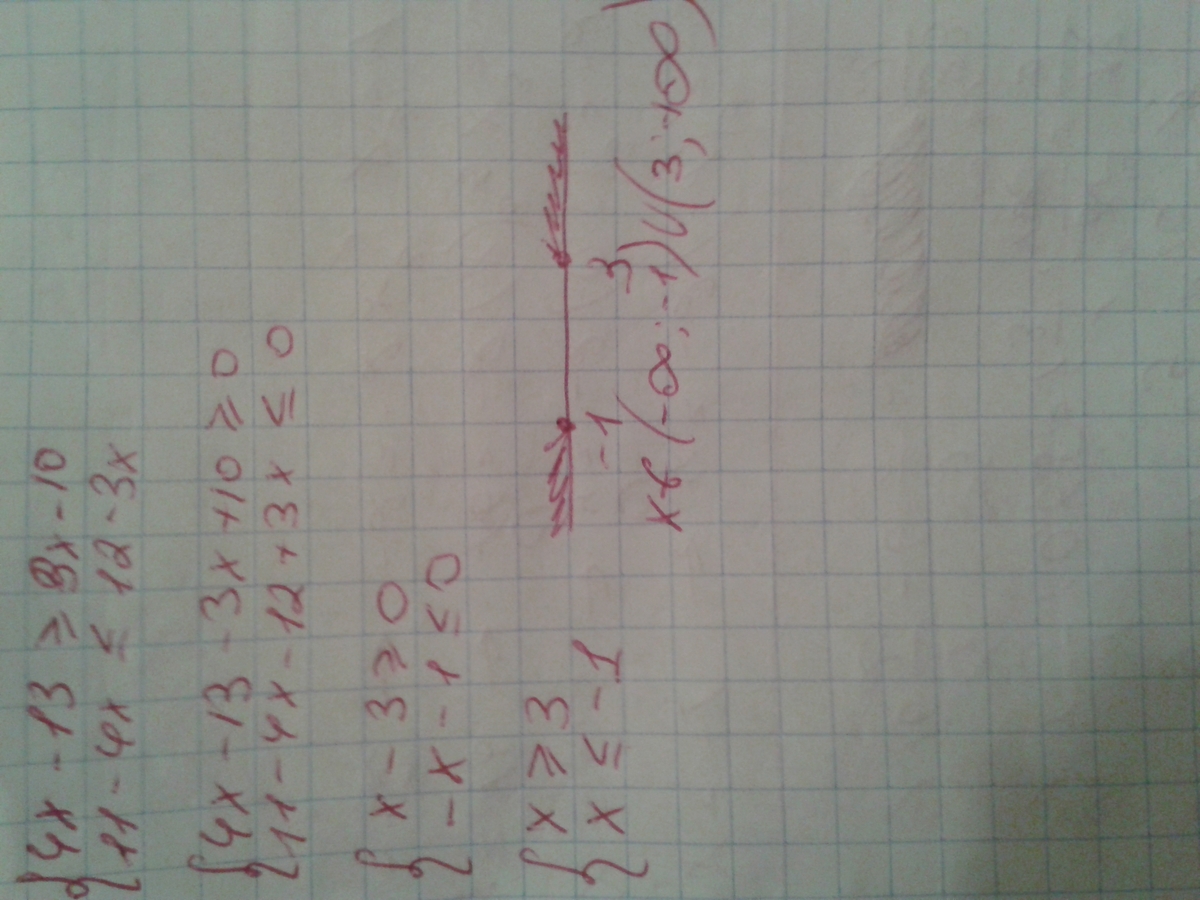 { 4x - 13 ≥ 3x - 10
11 - 4x ≤ 12 - 3x
{ 4x - 13 - 3x + 10 ≥ 0
11 - 4x - 12 + 3x ≤ 0
{ x - 3 ≥ 0
-x - 1 ≤ 0
{ x ≥ 3
x ≤ -1
-1 3
x ∈ (-∞; -1) ∪ (3; +∞)